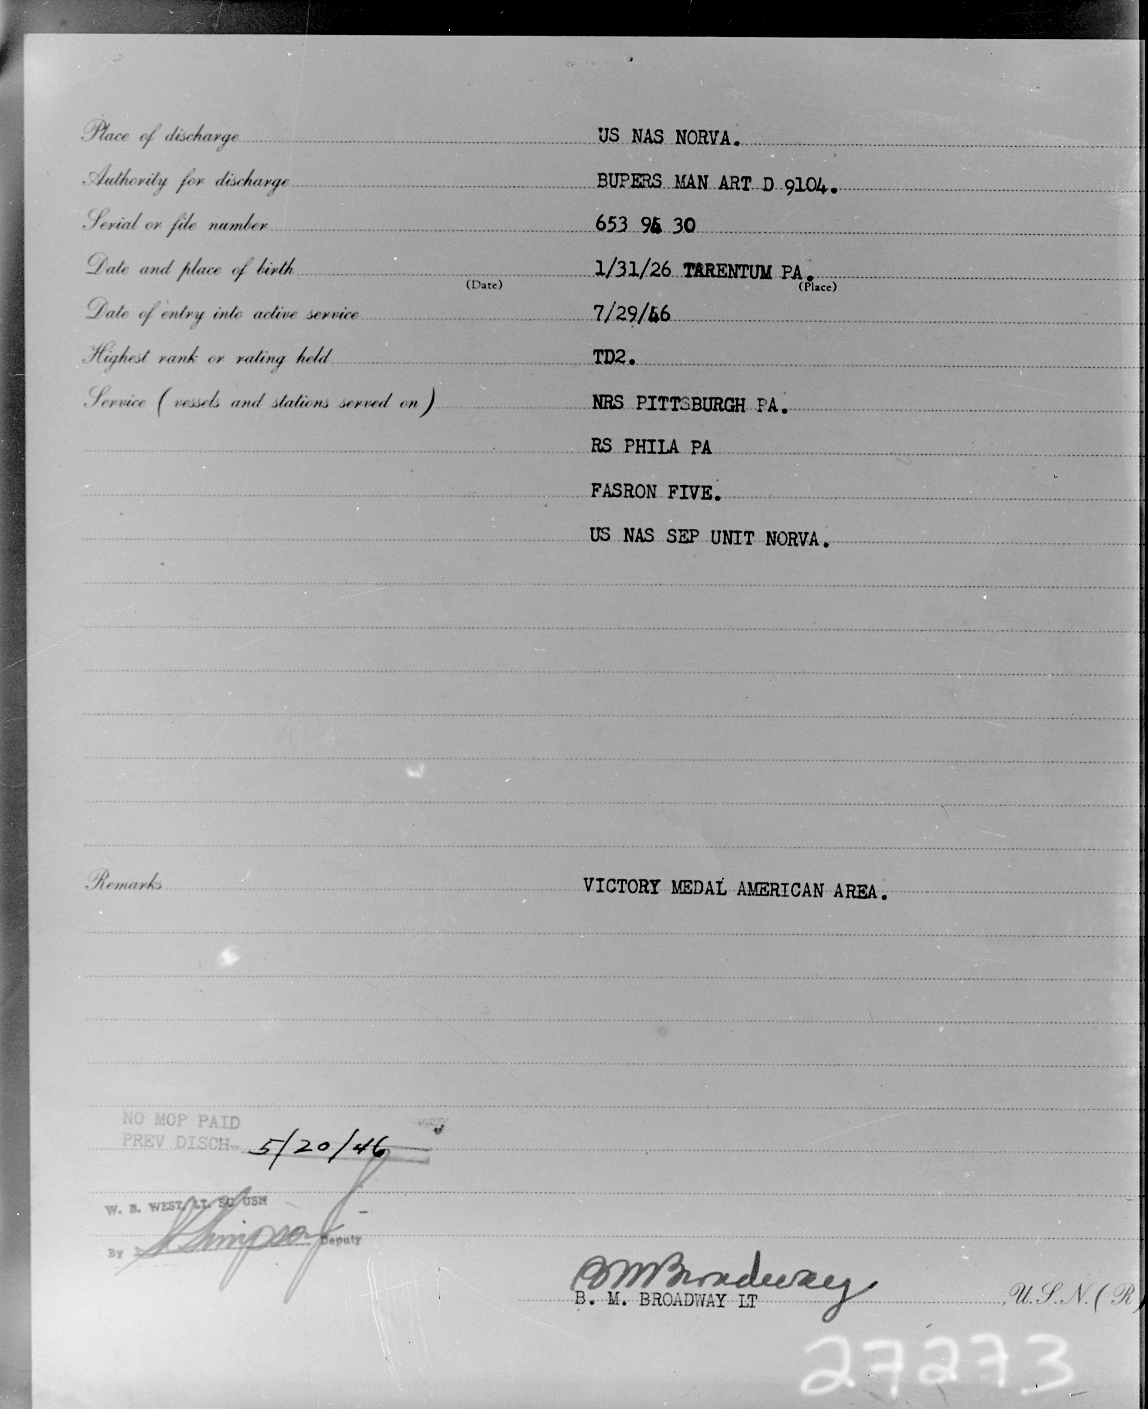 Place of discharge US NAS NORVA.
Authority for discharge BUPERS MAN ART D 9104.
Serial or file number 653 95 30
Date and place of birth 1/31/26 TARENTUM PA.
(Date) (Place)
Date of entry into active service 7/29/46
Highest rank or rating held TD2.
Service (vessels and stations served on) NRS PITTSBURGH PA.
RS PHILA PA
FASRON FIVE.
US NAS SEP UNIT NORVA.
Remarks VICTORY MEDAL AMERICAN AREA.
NO MOP PAID
PREV DISCH- 5/20/46
W. B. WEST, LT. SC USN
By Simpson Deputy
B M Broadway
B. M. BROADWAY LT , U.S.N.(R)
27273